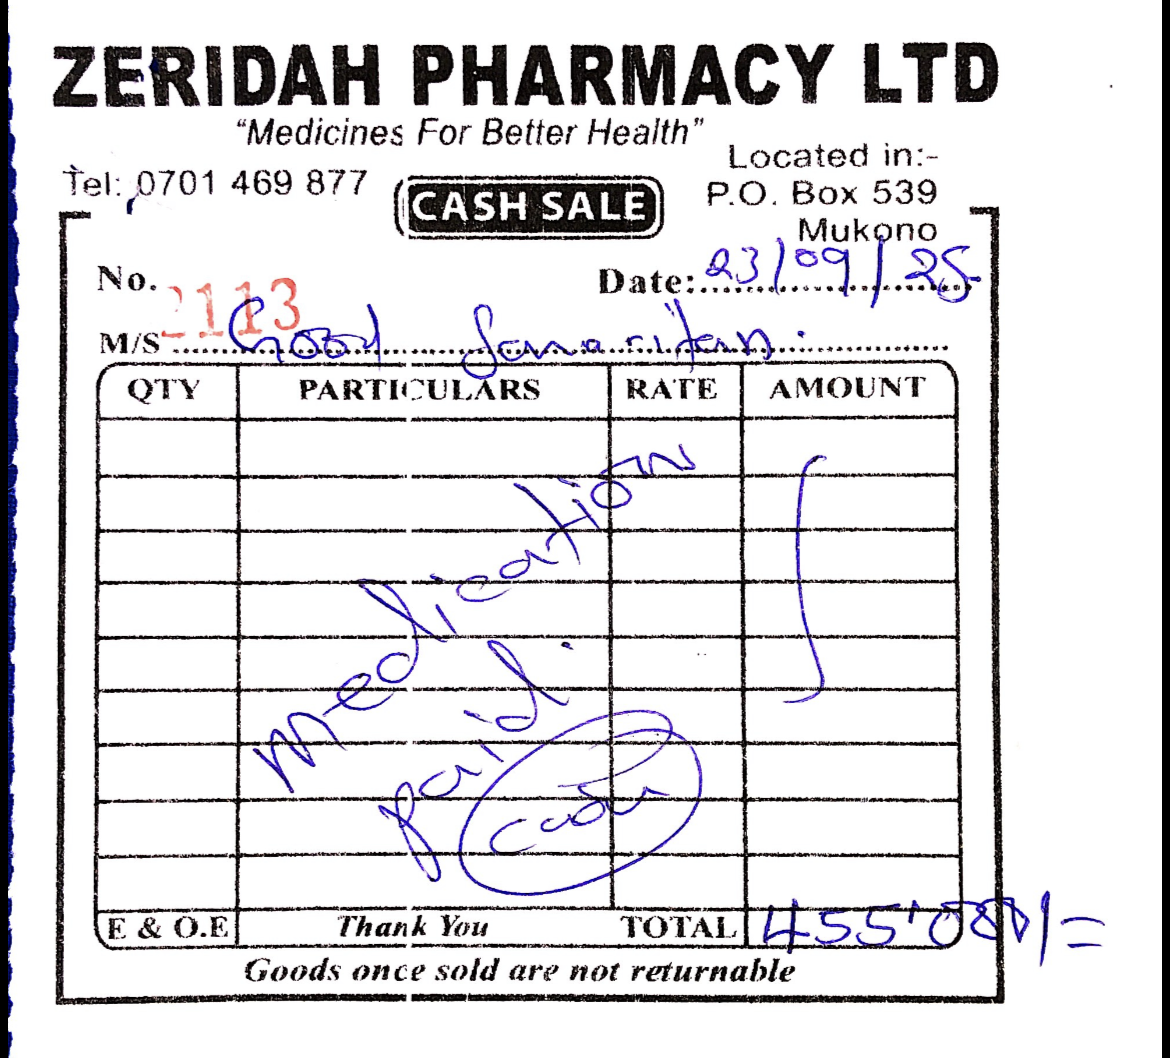 ZERIDAH PHARMACY LTD
"Medicines For Better Health"
Tel: 0701 469 877
CASH SALE
Located in:-
P.O. Box 539
Mukono
No. 2113
Date: 23/09/25
M/S Good Samaritan.
QTY PARTICULARS RATE AMOUNT
medication
paid.
cash
E & O.E Thank You TOTAL 455'000/=
Goods once sold are not returnable